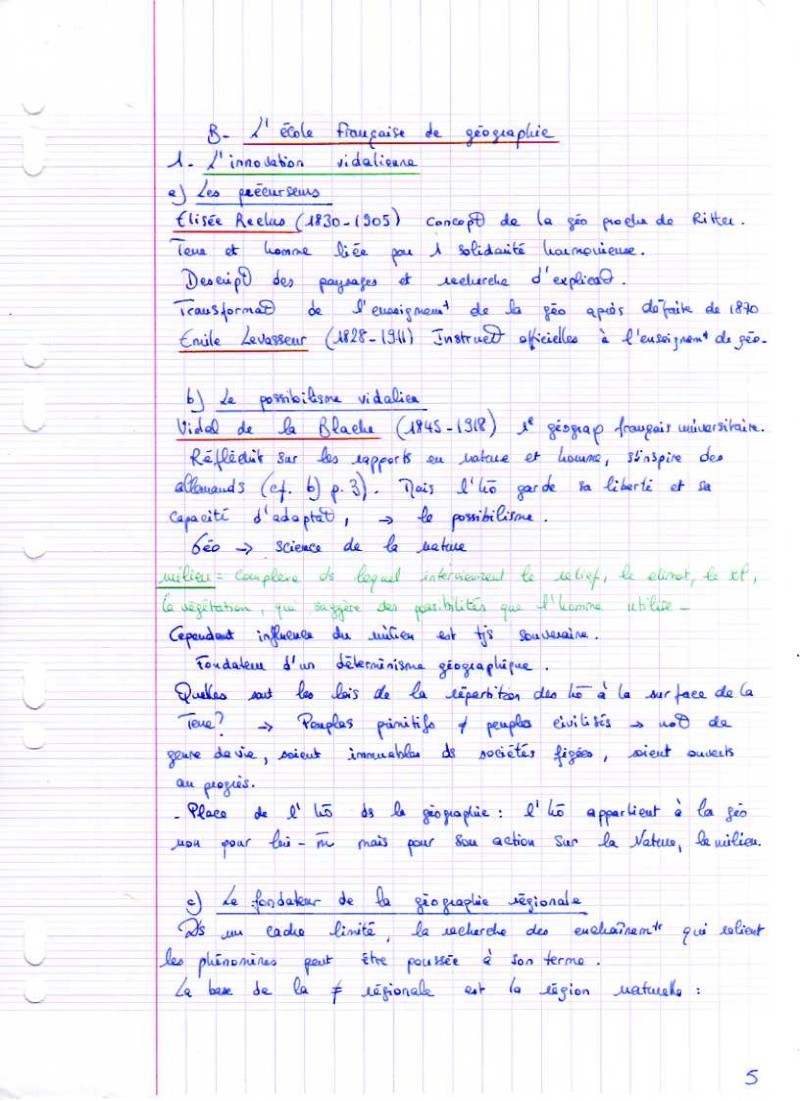 B- L'école française de géographie
1- L'innovation vidalienne
a) Les précurseurs
Elisée Reclus (1830-1905) concept° de la géo proche de Ritter.
Terre et homme liée par 1 solidarité harmonieuse.
Descript° des paysages et recherche d'explicat°.
Transformat° de l'enseignemt de la géo après défaite de 1870
Emile Levasseur (1828-1911) Instruct° officielles à l'enseignemt de géo.
b) Le possibilisme vidalien
Vidal de la Blache (1845-1918) 1e géograp français universitaire.
Réfléchit sur les rapports en nature et homme, s'inspire des
allemands (cf. b) p.3). Mais l'hô garde sa liberté et sa
capacité d'adaptat°, → le possibilisme.
Géo → science de la nature
milieu = complexe ds lequel interviennent le relief, le climat, le
la végétation, qui suggère des possibilités que l'homme utilise -
Cependant influence du milieu est tjs souveraine.
Fondateur d'un déterminisme géographique.
Quelles sont les lois de la répartition des hô à la surface de la
Terre? → Peuples primitifs ≠ peuples civilisés → not° de
genre de vie, soient immuables ds sociétés figées, soient ouverts
au progrès.
- Place de l'hô ds la géographie : l'hô appartient à la géo
non pour lui-m̄ mais pour son action sur la Nature, le milieu.
c) Le fondateur de la géographie régionale
Ds un cadre limité, la recherche des enchaînemts qui relient
les phénomènes peut être poussée à son terme.
La base de la ≠ régionale est la région naturelle :
5